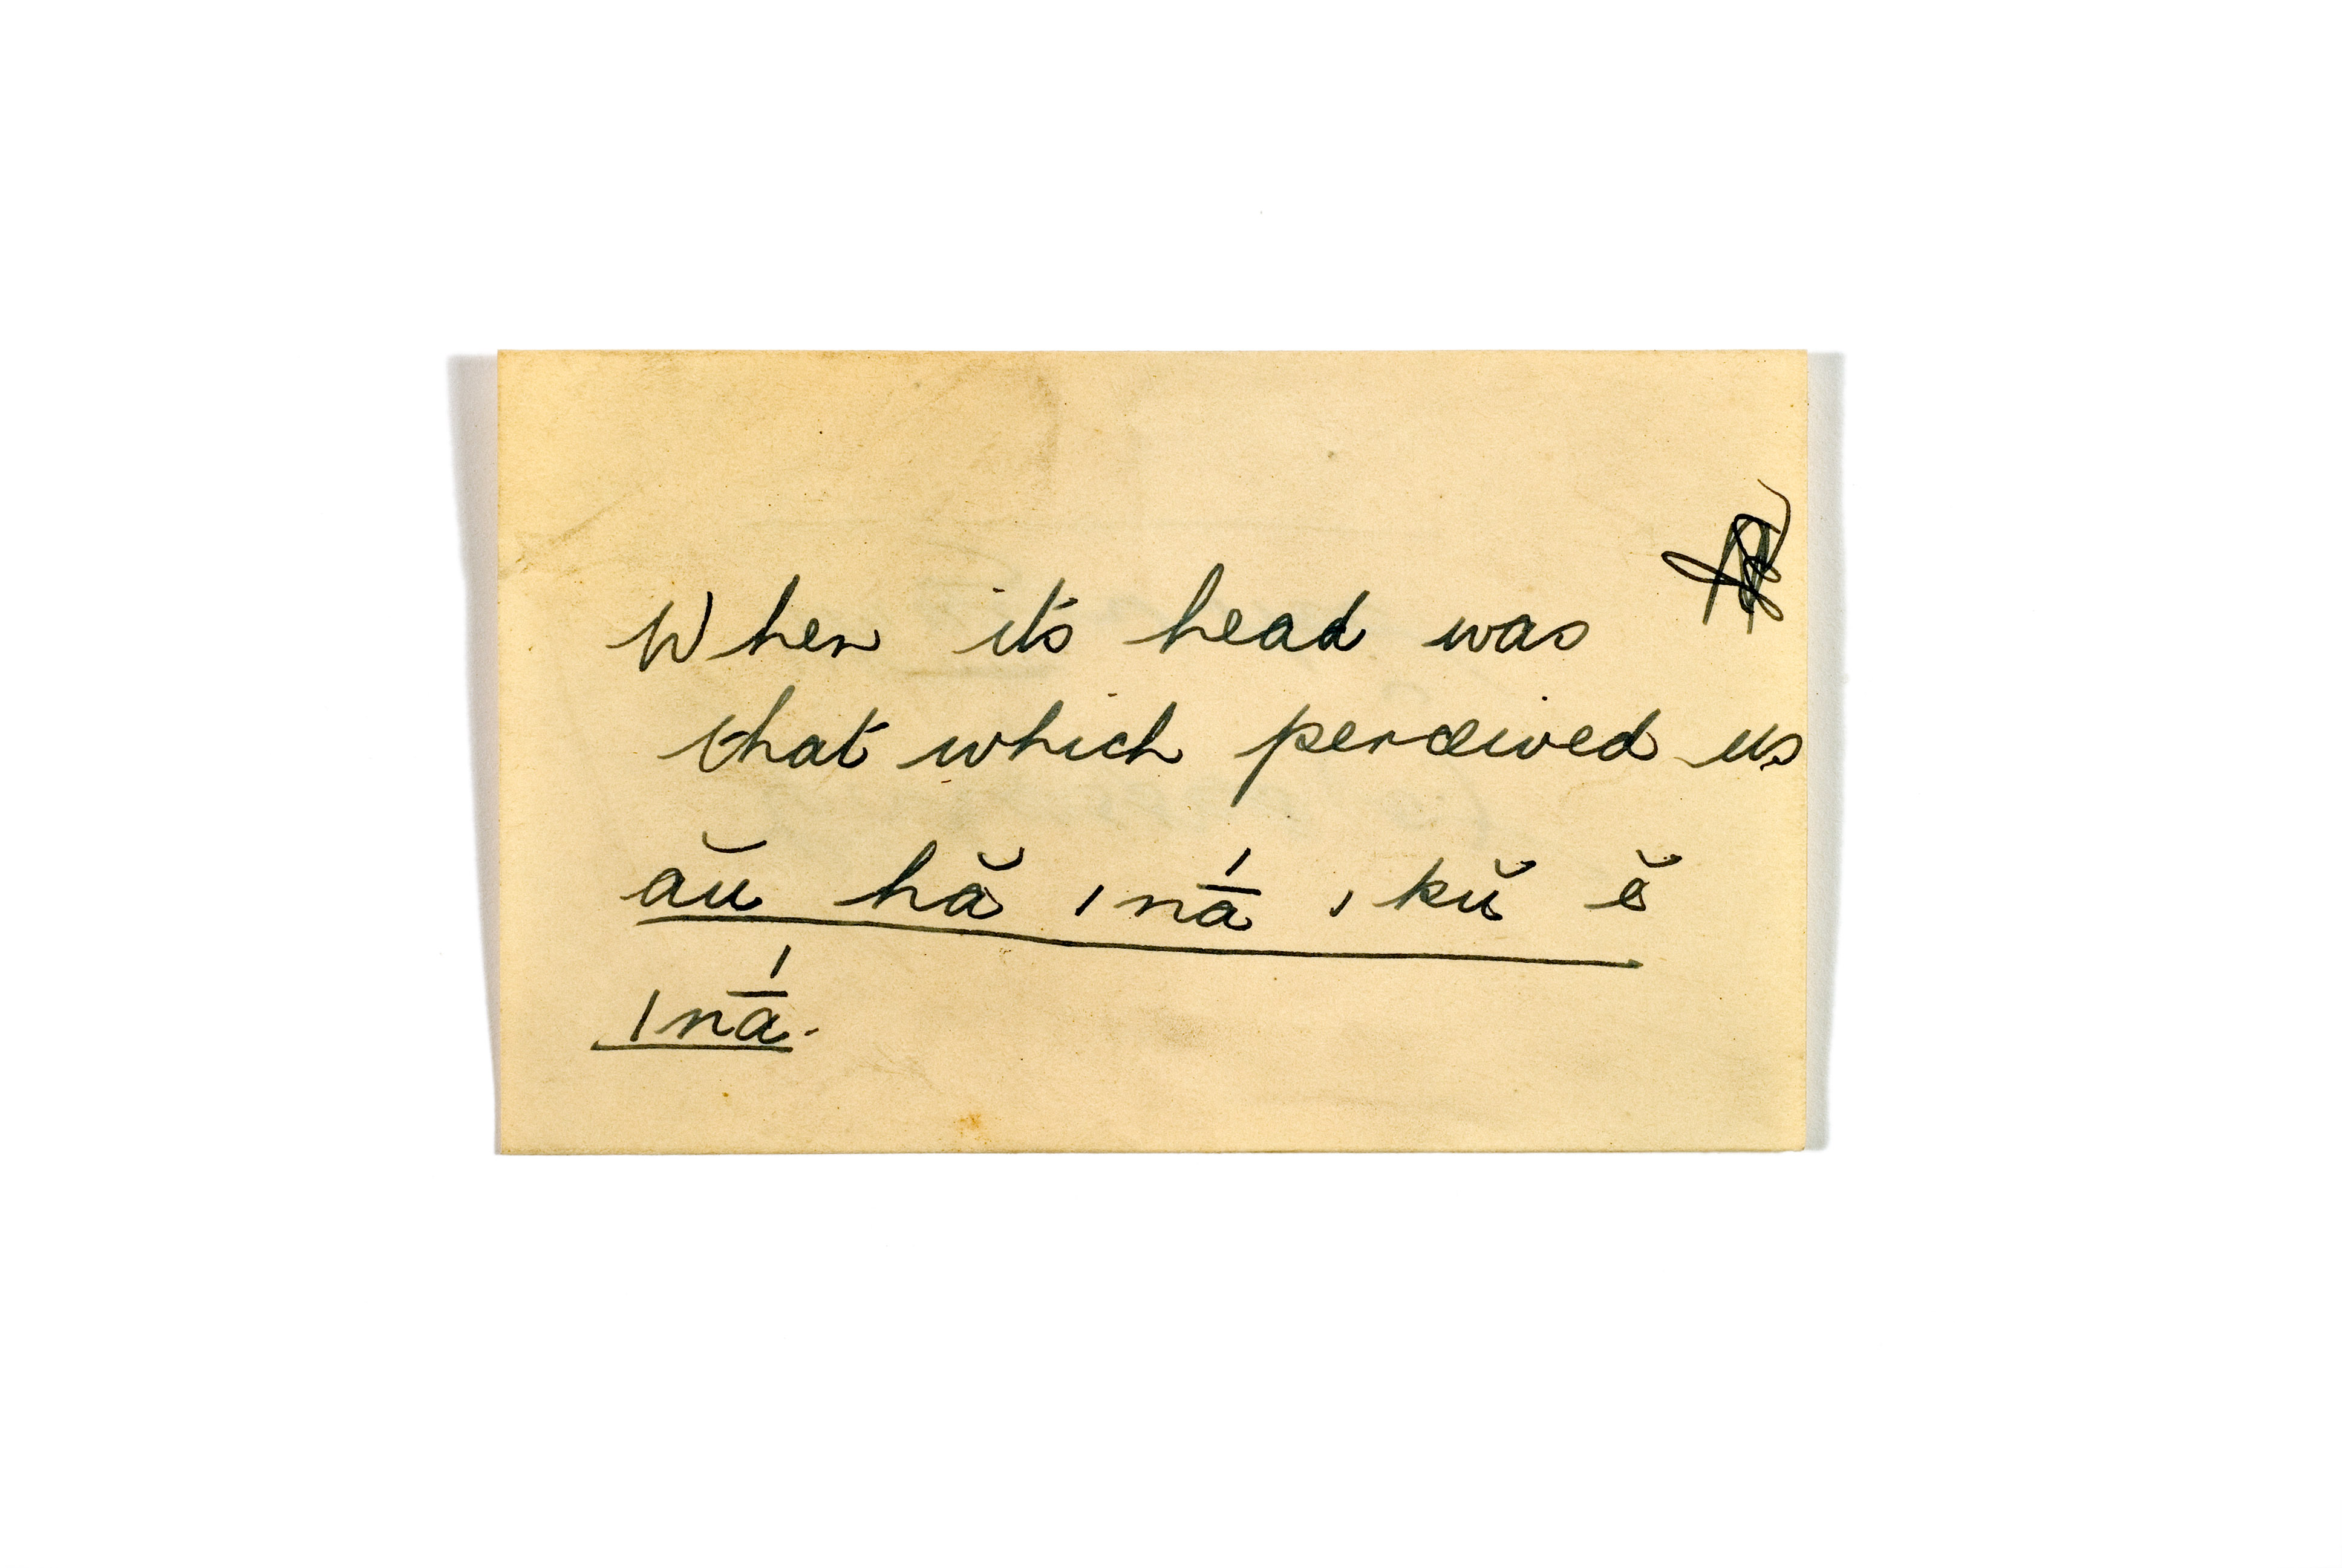 When its head was
that which perceived us
ău hă ınā́ ı kŭ ĕ
ınā́.